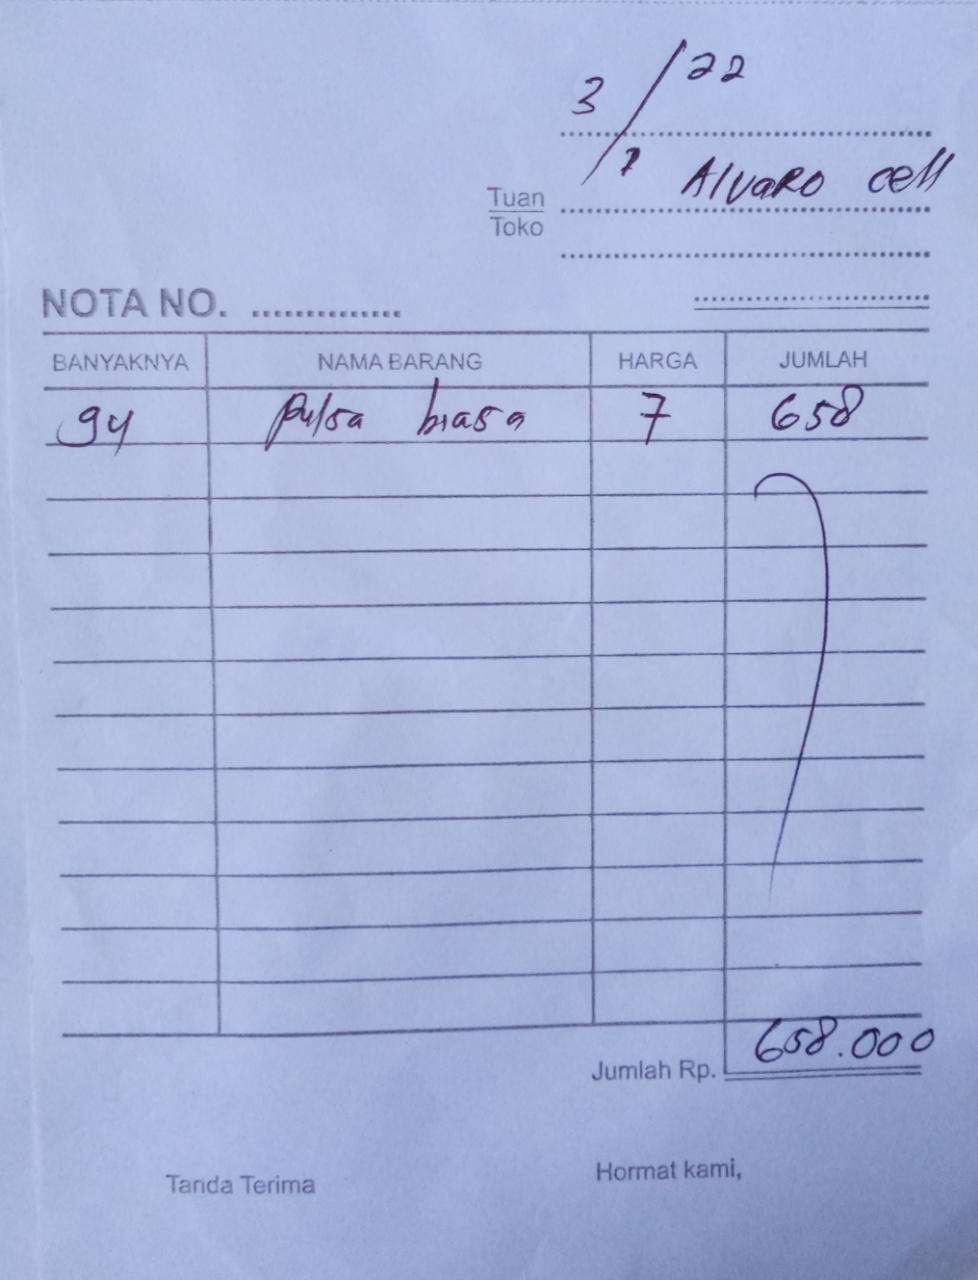 3/7 22
Tuan Alvaro cell
Toko
NOTA NO. ..............
BANYAKNYA NAMA BARANG HARGA JUMLAH
94 Pulsa biasa 7 658
Jumlah Rp. 658.000
Tanda Terima Hormat kami,